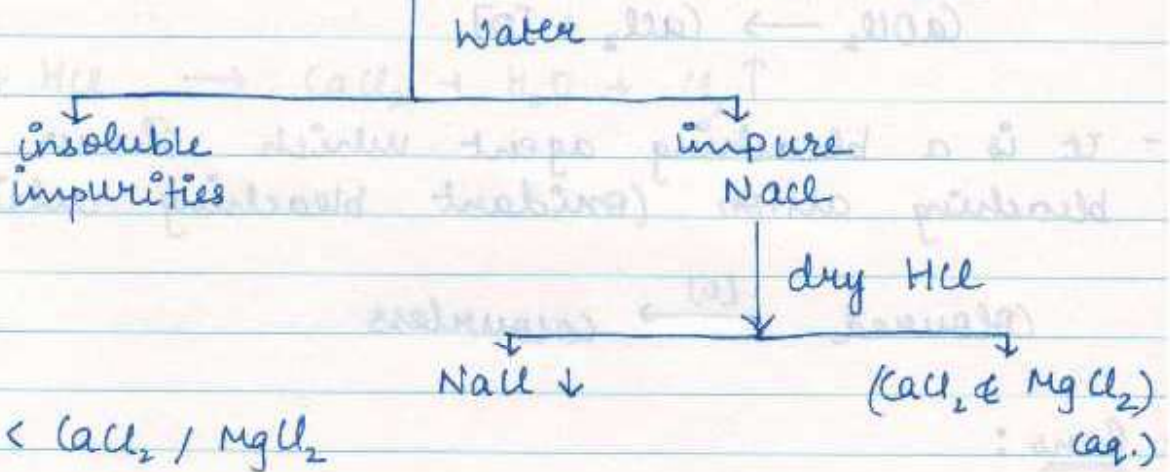 Water
insoluble impure
impurities NaCl
dry HCl
NaCl ↓ (CaCl₂ & MgCl₂)
< CaCl₂ / MgCl₂ (aq.)